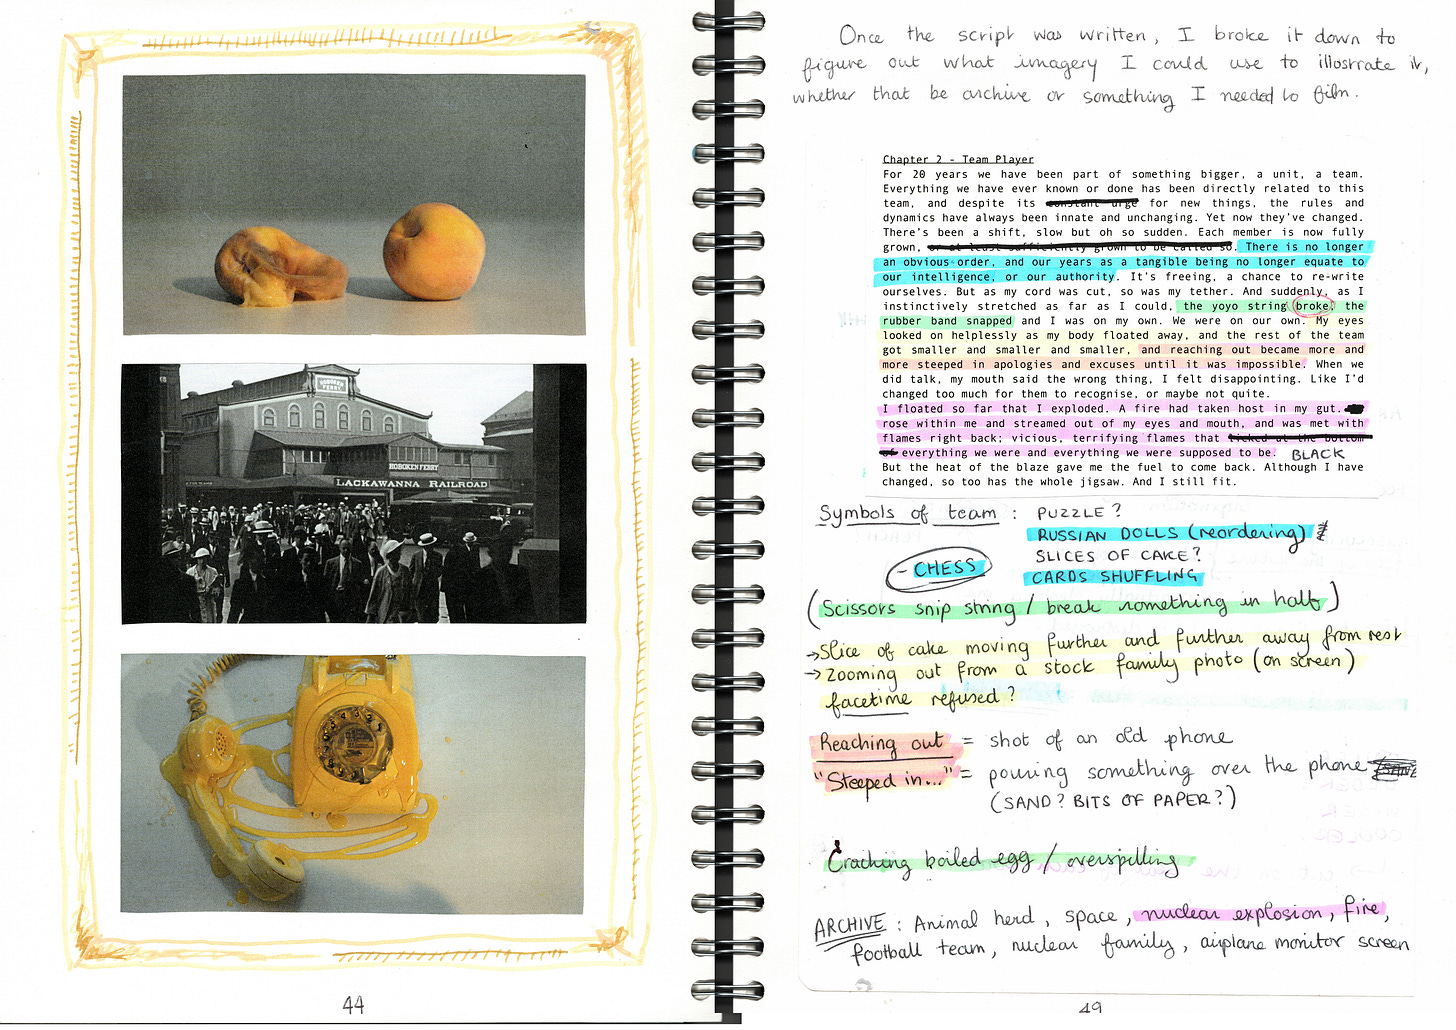 HOBOKEN FERRY
HOBOKEN FERRY
LACKAWANNA RAILROAD
44
Once the script was written, I broke it down to
figure out what imagery I could use to illustrate it,
whether that be archive or something I needed to film.
Chapter 2 - Team Player
For 20 years we have been part of something bigger, a unit, a team.
Everything we have ever known or done has been directly related to this
team, and despite its constant urge for new things, the rules and
dynamics have always been innate and unchanging. Yet now they've changed.
There's been a shift, slow but oh so sudden. Each member is now fully
grown, or at least sufficiently grown to be called so. There is no longer
an obvious order, and our years as a tangible being no longer equate to
our intelligence, or our authority. It's freeing, a chance to re-write
ourselves. But as my cord was cut, so was my tether. And suddenly, as I
instinctively stretched as far as I could, the yoyo string broke, the
rubber band snapped and I was on my own. We were on our own. My eyes
looked on helplessly as my body floated away, and the rest of the team
got smaller and smaller and smaller, and reaching out became more and
more steeped in apologies and excuses until it was impossible. When we
did talk, my mouth said the wrong thing, I felt disappointing. Like I'd
changed too much for them to recognise, or maybe not quite.
I floated so far that I exploded. A fire had taken host in my gut.
rose within me and streamed out of my eyes and mouth, and was met with
flames right back; vicious, terrifying flames that licked at the bottom
of everything we were and everything we were supposed to be. BLACK
But the heat of the blaze gave me the fuel to come back. Although I have
changed, so too has the whole jigsaw. And I still fit.
Symbols of team : PUZZLE?
RUSSIAN DOLLS (reordering)
SLICES OF CAKE?
- CHESS
CARDS SHUFFLING
(Scissors snip string / break something in half)
→ Slice of cake moving further and further away from rest
→ Zooming out from a stock family photo (on screen)
facetime refused?
Reaching out = shot of an old phone
"Steeped in..." = pouring something over the phone
(SAND? BITS OF PAPER?)
Cracking boiled egg / overspilling
ARCHIVE : Animal herd, space, nuclear explosion, fire,
football team, nuclear family, airplane monitor screen
49